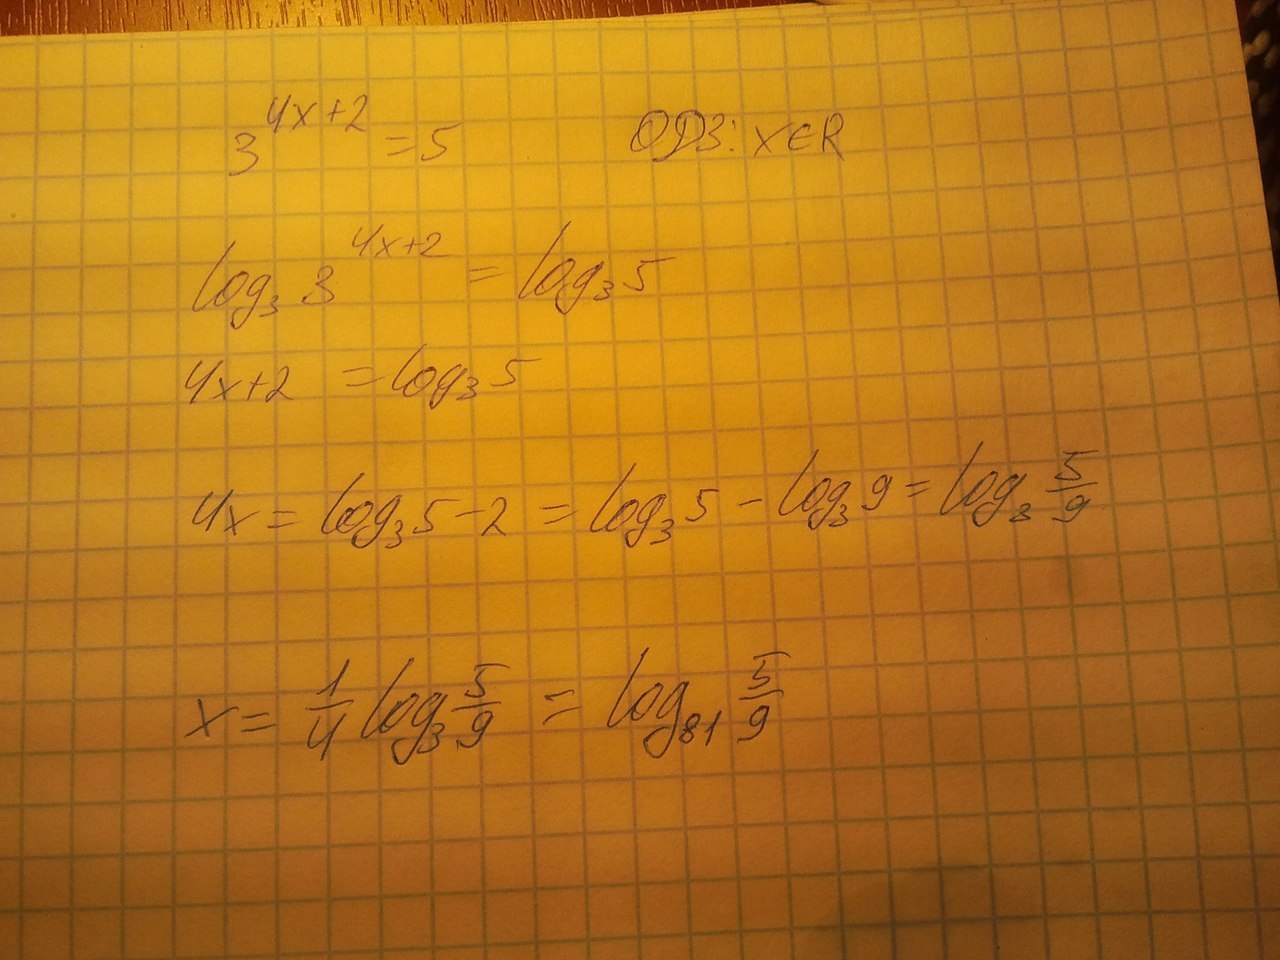 3^{4x+2} = 5 ОДЗ: x∈R
log₃ 3^{4x+2} = log₃ 5
4x+2 = log₃ 5
4x = log₃ 5 - 2 = log₃ 5 - log₃ 9 = log₃ 5/9
x = 1/4 log₃ 5/9 = log₈₁ 5/9